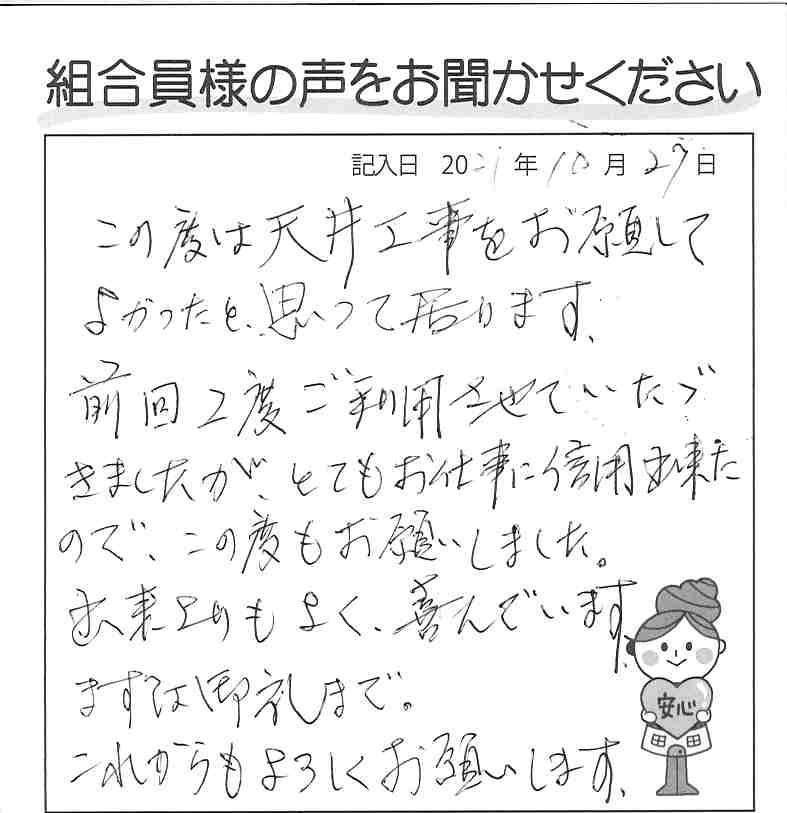 組合員様の声をお聞かせください
記入日 2021年10月27日
この度は天井工事をお願して
よかったと、思って居ります、
前回2度ご利用させていたづ
きましたが、とてもお仕事に信用出来た
ので、この度もお願いしました。
出来上りもよく、喜んでいます、
まずは御礼まで。
これからもよろしくお願いします、
安心